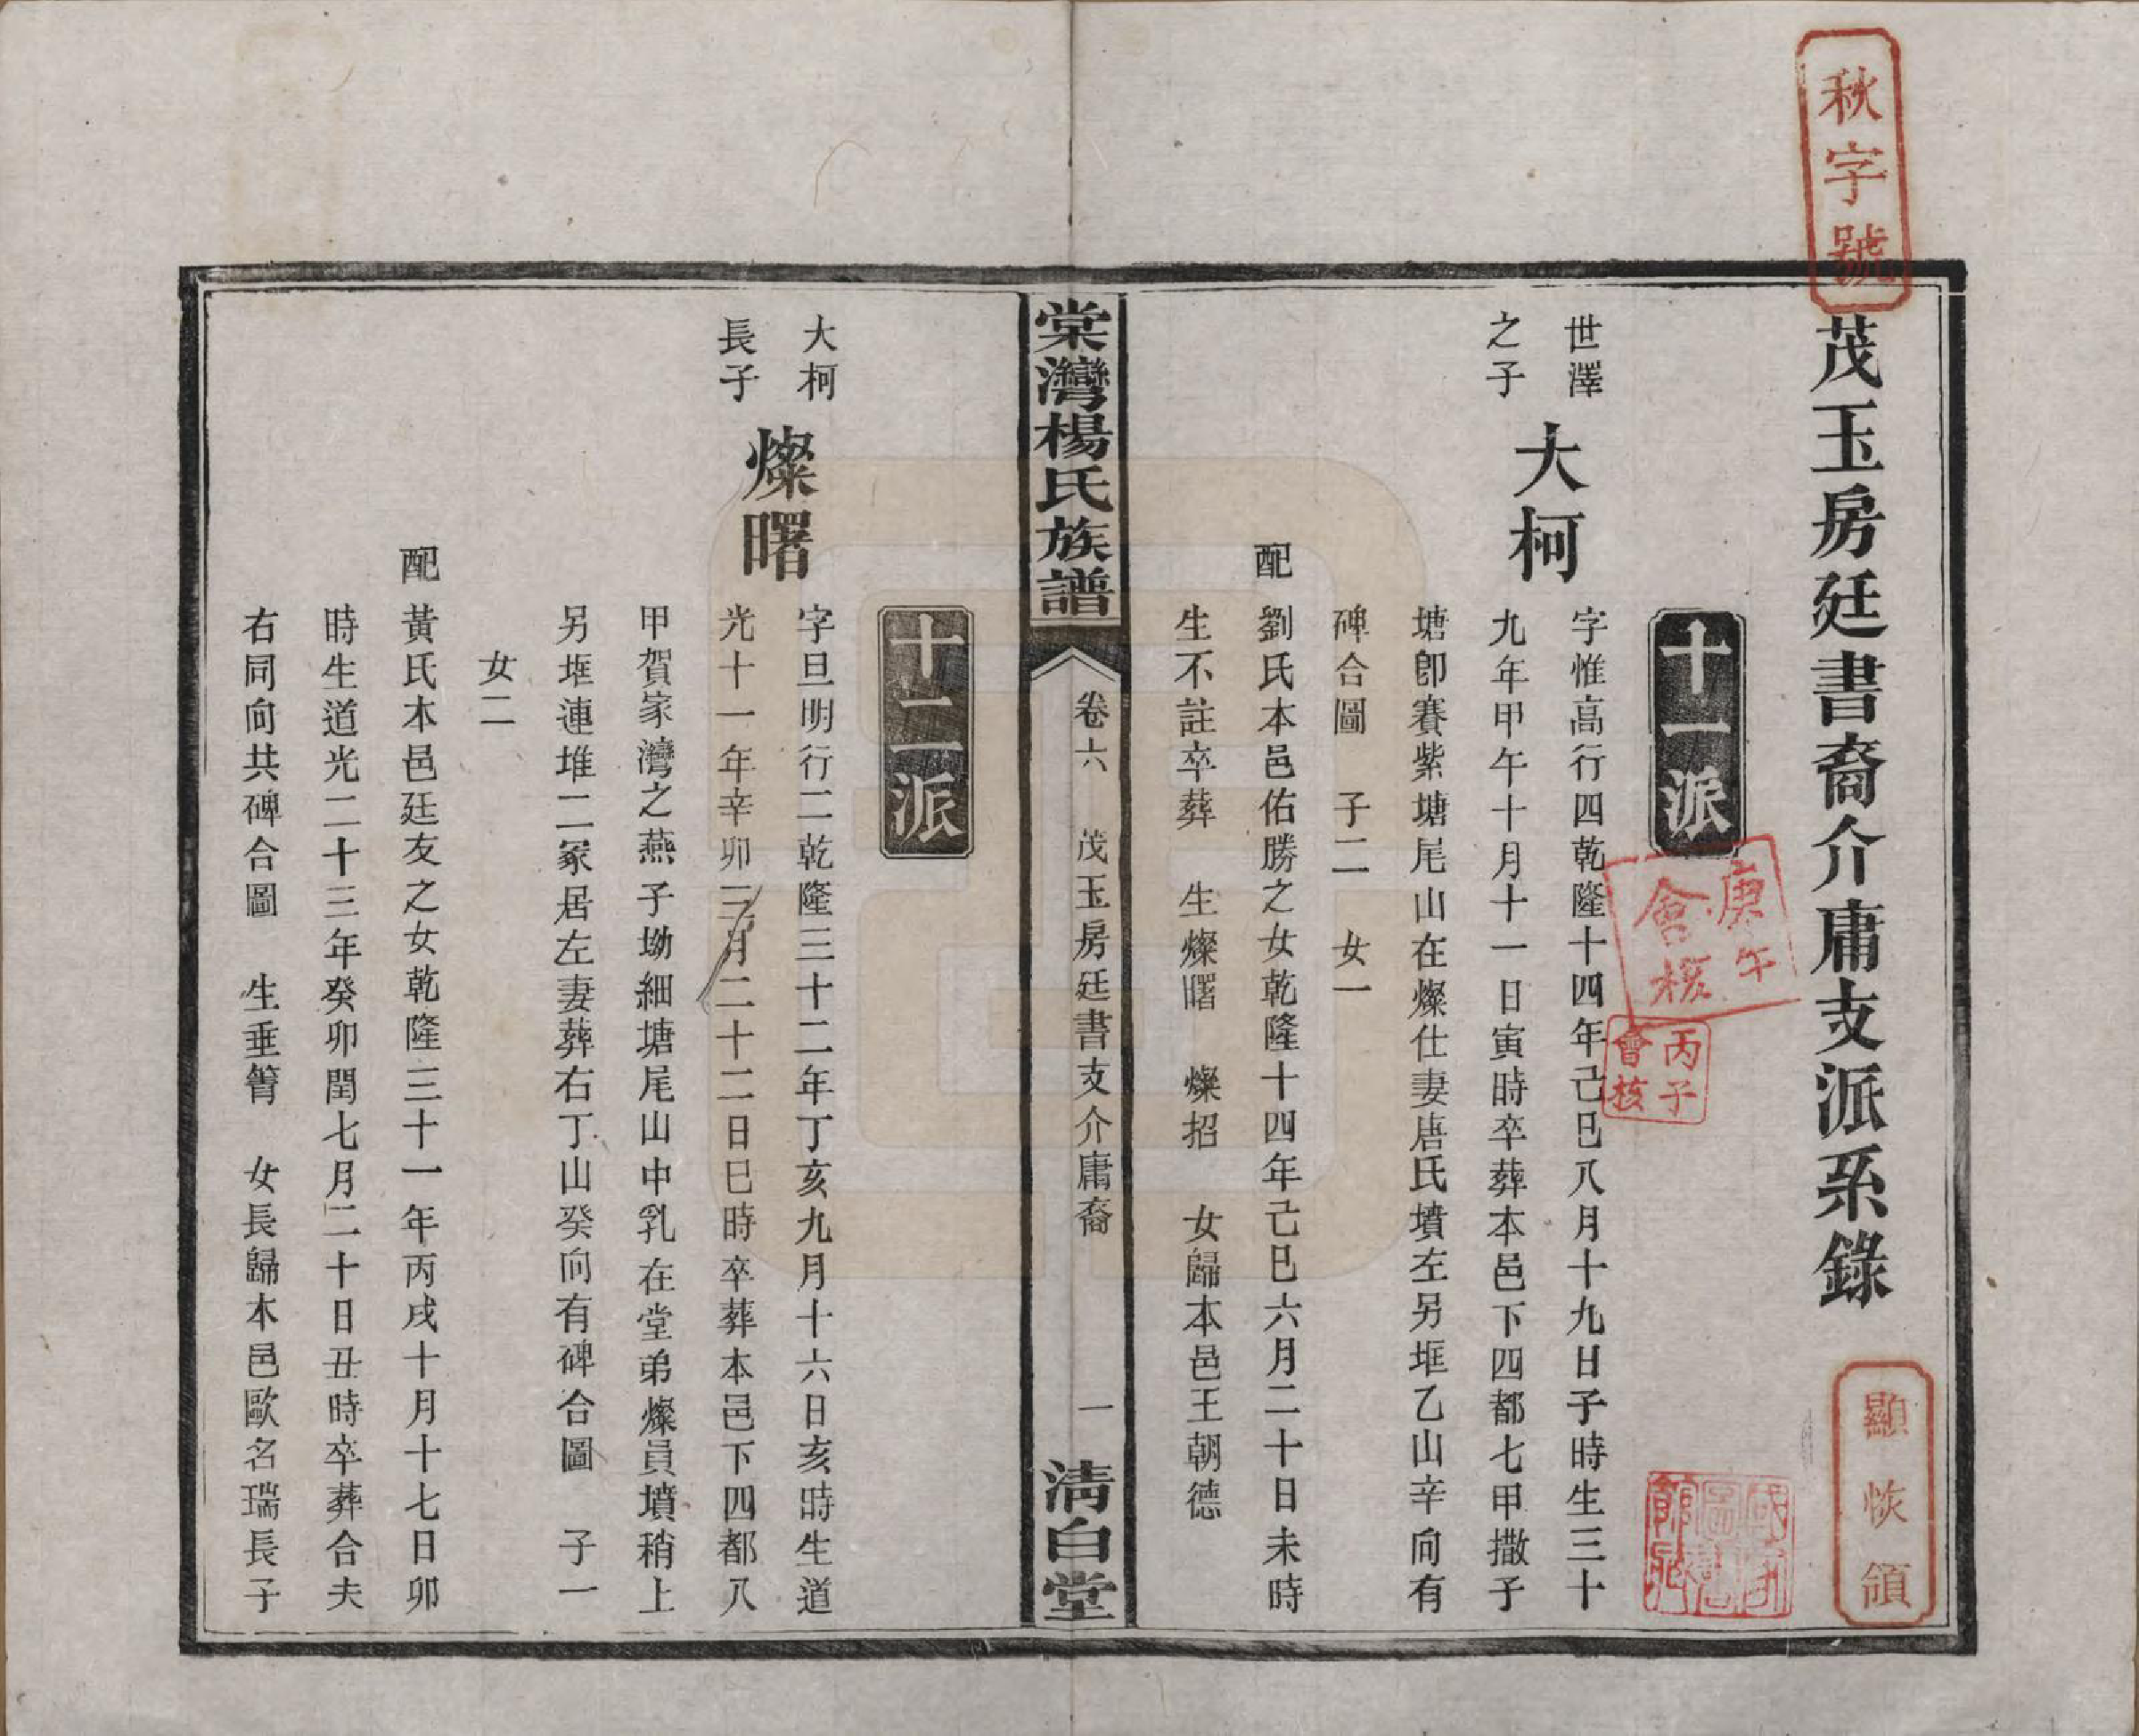 秋字號
茂玉房廷書裔介庸支派系錄
顯恢領
十一派
庚午會核
丙子會核
世澤之子
大柯
字惟高行四乾隆十四年己巳八月十九日子時生三十
九年甲午十月十一日寅時卒葬本邑下四都七甲撒子
塘卽賽紫塘尾山在燦仕妻唐氏墳左另堆乙山辛向有
碑合圖 子二 女一
配劉氏本邑佑勝之女乾隆十四年己巳六月二十日未時
生不註卒葬 生燦曙 燦招 女歸本邑王朝德
棠灣楊氏族譜
卷六 茂玉房廷書支介庸裔 一
清白堂
十二派
大柯長子
燦曙
字旦明行二乾隆三十二年丁亥九月十六日亥時生道
光十一年辛卯三月二十二日巳時卒葬本邑下四都八
甲賀家灣之燕子坳細塘尾山中乳在堂弟燦員墳稍上
另堆連堆二冢居左妻葬右丁山癸向有碑合圖 子一
女二
配黃氏本邑廷友之女乾隆三十一年丙戌十月十七日卯
時生道光二十三年癸卯閏七月二十日丑時卒葬合夫
右同向共碑合圖 生垂箐 女長歸本邑歐名瑞長子